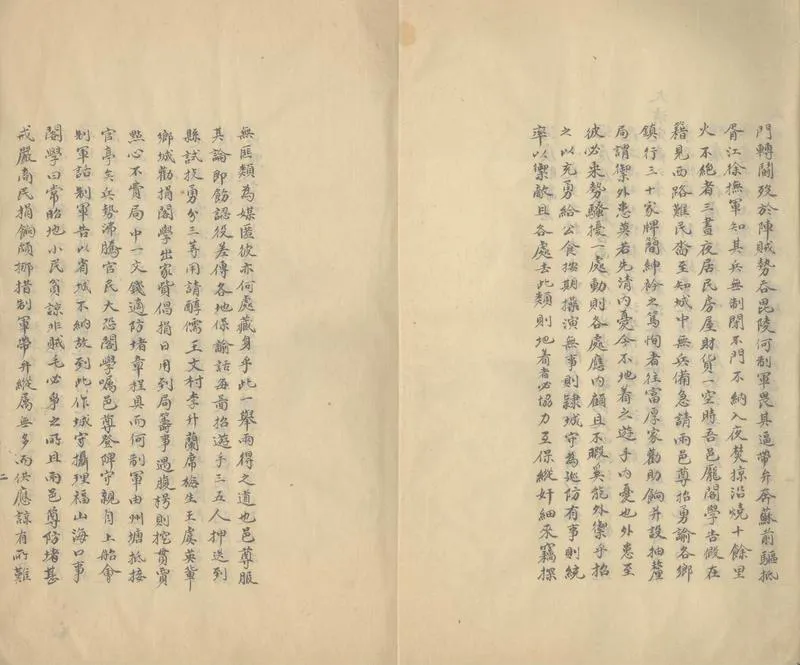 門轉鬭歿於陣賊勢吞毘陵何制軍畏其逼帶弁奔蘇前驅抵
胥江徐撫軍知其兵無制閉不門不納入夜焚掠沿燒十餘里
火不絕者三晝夜居民房屋財貨一空時吾邑龐閣學告假在
籍見西路難民畨至知城中無兵備急請兩邑尊招勇諭各鄉
鎮行三十家牌閤紳衿之篤恂者往富厚家勸助餉并設抽釐
局謂禦外患莫若先清內憂今不地着之遊手內憂也外患至
彼必來勢騷擾一處動則各處應內顧且不暇奚能外禦乎招
之以充勇給公食按期操演無事則隸城守為巡防有事則統
率以禦敵且各處去此類則地着者必協力互保縱奸細來竊探
無匪類為媒匿彼亦何處藏身乎此一舉兩得之道也邑尊服
其論即飭認役差傳各地保諭話每啚招遊手三五人押送到
縣試技勇分三等用請醇儒王文村李升蘭席梅生王虞英軰
鄉城勸捐閣學出家貲倡捐日用到局籌事遇腹枵則挖貫買
點心不費局中一文錢適防堵章程具而何制軍由州塘抵接
官亭矣兵勢沸騰官民大恐閣學囑邑尊登陴守親自上船會
制軍詰制軍告以省城不納故到此作城守攝理福山海口事
閣學曰常昭地小民貧諒非賊毛必爭之所且兩邑尊防堵甚
戒嚴商民捐餉頗挪措制軍帶弁縱屬無多而供應諒有所難
二